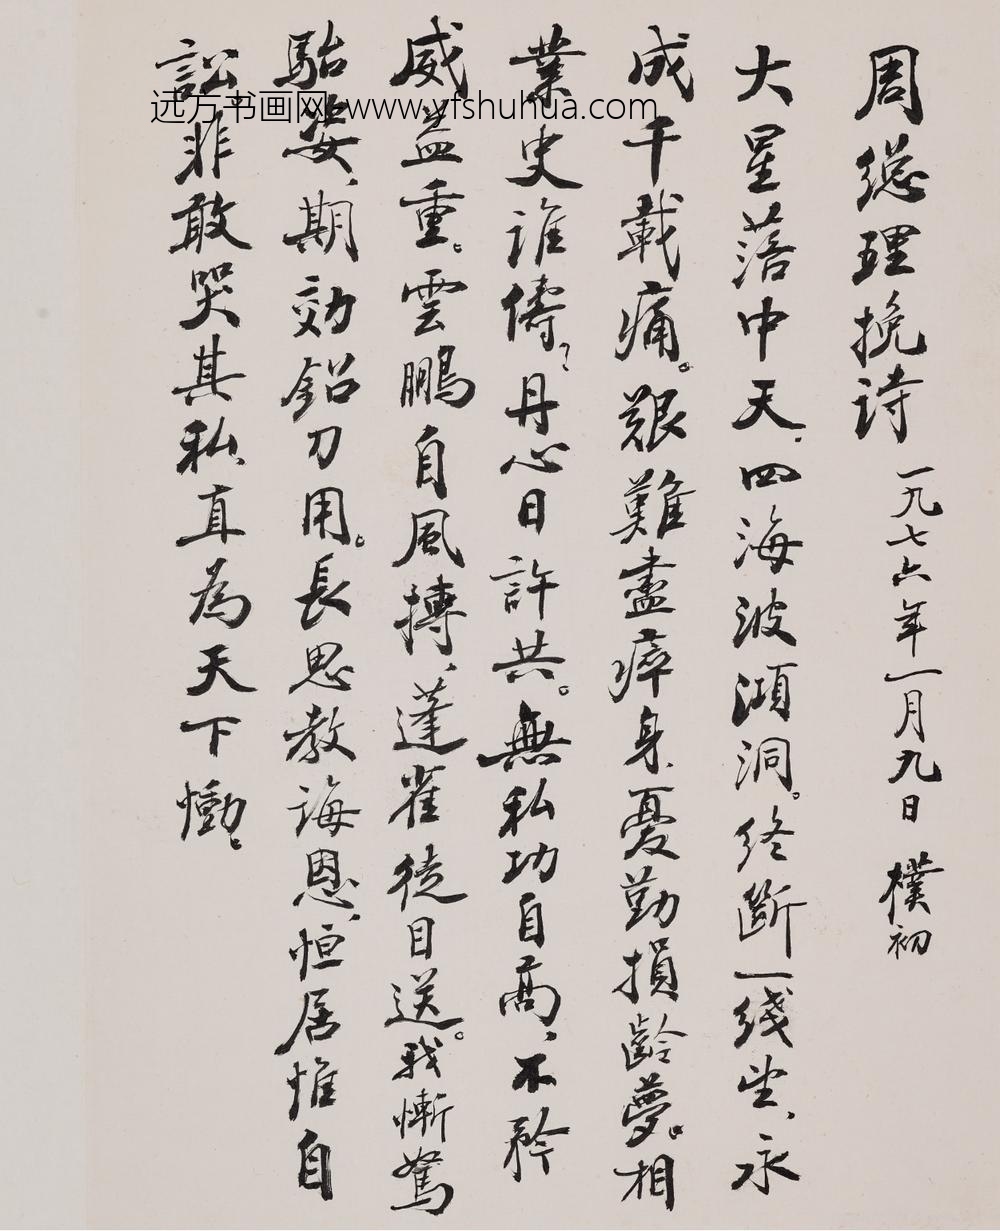 周總理挽诗 一九七六年一月九日 樸初
大星落中天，四海波澒洞。终斷一线望，永
成千載痛。艰難盡瘁身，憂勤損齡夢。相
業史誰儔？丹心日許共。無私功自高，不矜
威益重。雲鵬自風搏，蓬雀徒目送。我慚駑
駘姿，期効鉛刀用。長思教誨恩，恒居惟自
訟。非敢哭其私，直為天下慟。
远方书画网 www.yfshuhua.com